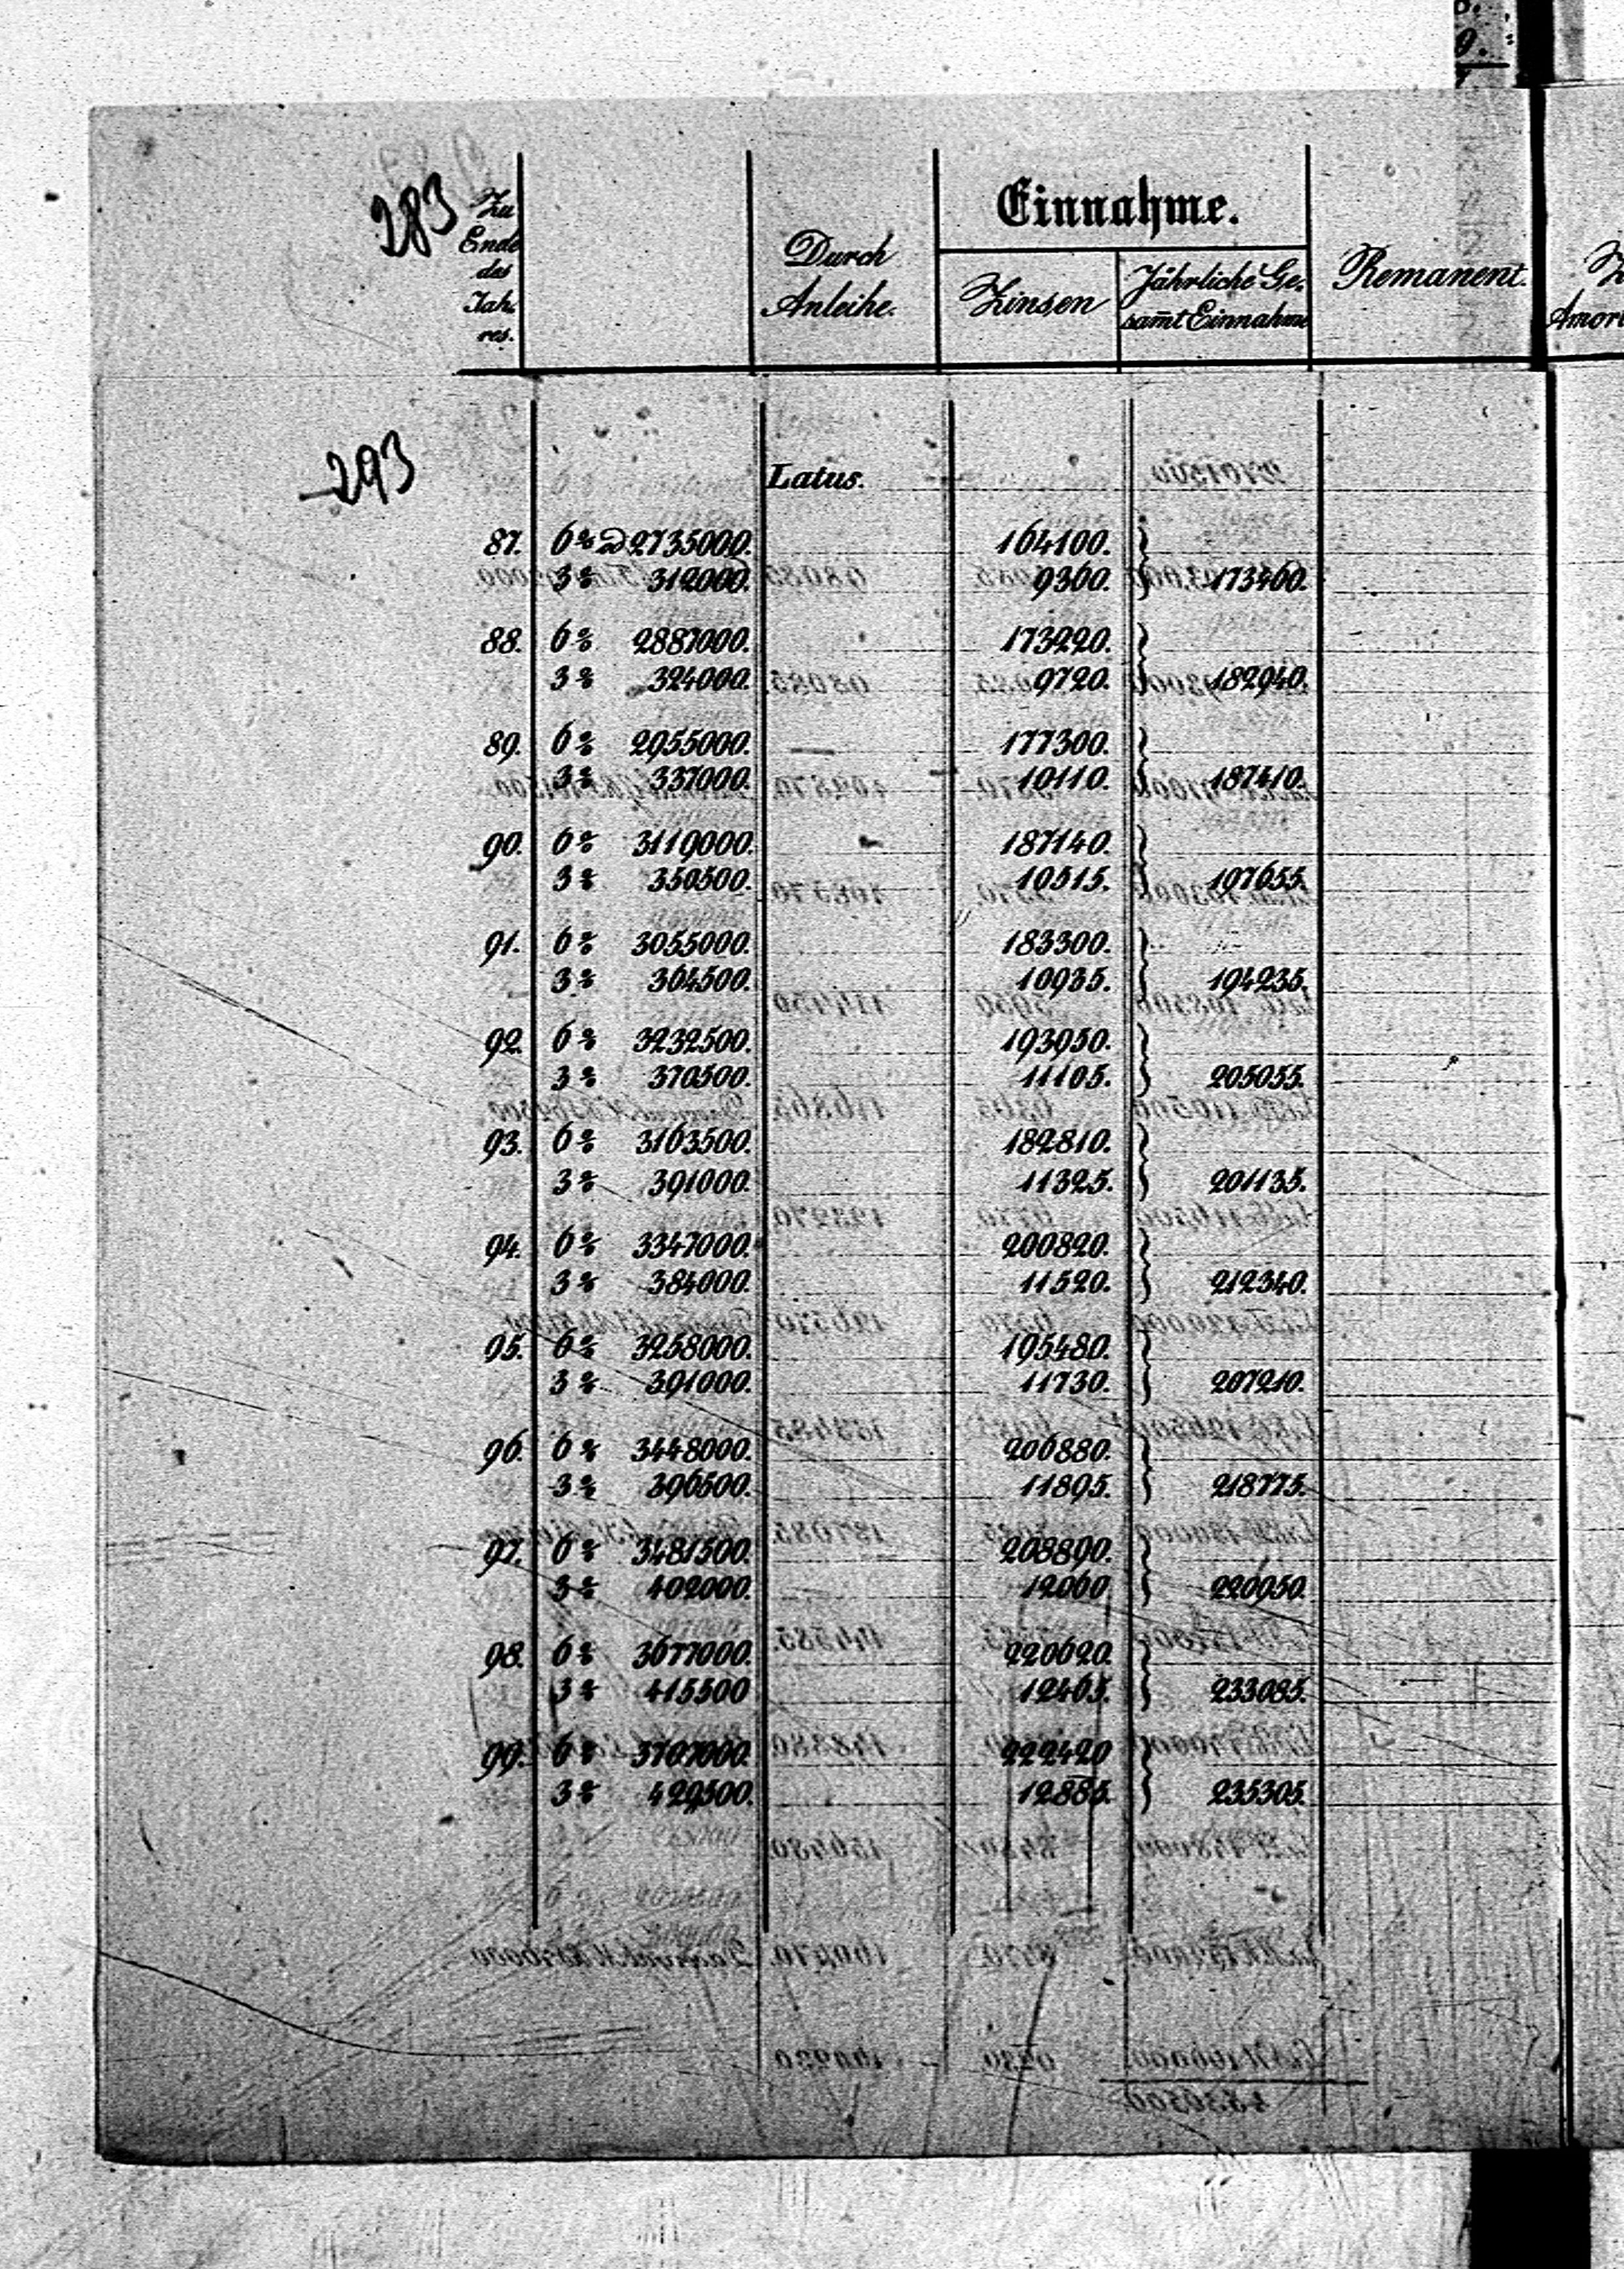 283
Zu Ende des Jah- res.
Durch Anleihe.
Einnahme.
Zinsen
Jährliche Ge- samt Einnahme
Remanent.
293
Latus.
87. 6% 2735000. 164100.
3% 312000. 9360. 173460.
88. 6% 2887000. 173220.
3% 324000. 9720. 182940.
89. 6% 2955000. 177300.
3% 337000. 10110. 187410.
90. 6% 3119000. 187140.
3% 350500. 10515. 197655.
91. 6% 3055000. 183300.
3% 364500. 10935. 194235.
92. 6% 3232500. 193950.
3% 370500. 11105. 205055.
93. 6% 3163500. 182810.
3% 391000. 11325. 201135.
94. 6% 3347000. 200820.
3% 384000. 11520. 212340.
95. 6% 3258000. 195480.
3% 391000. 11730. 207210.
96. 6% 3448000. 206880.
3% 396500. 11895. 218775.
97. 6% 3481500. 208890.
3% 402000. 12060 220950.
98. 6% 3677000. 220620.
3% 415500 12465. 233085.
99. 6% 3707000. 222420
3% 429500. 12885. 235305.